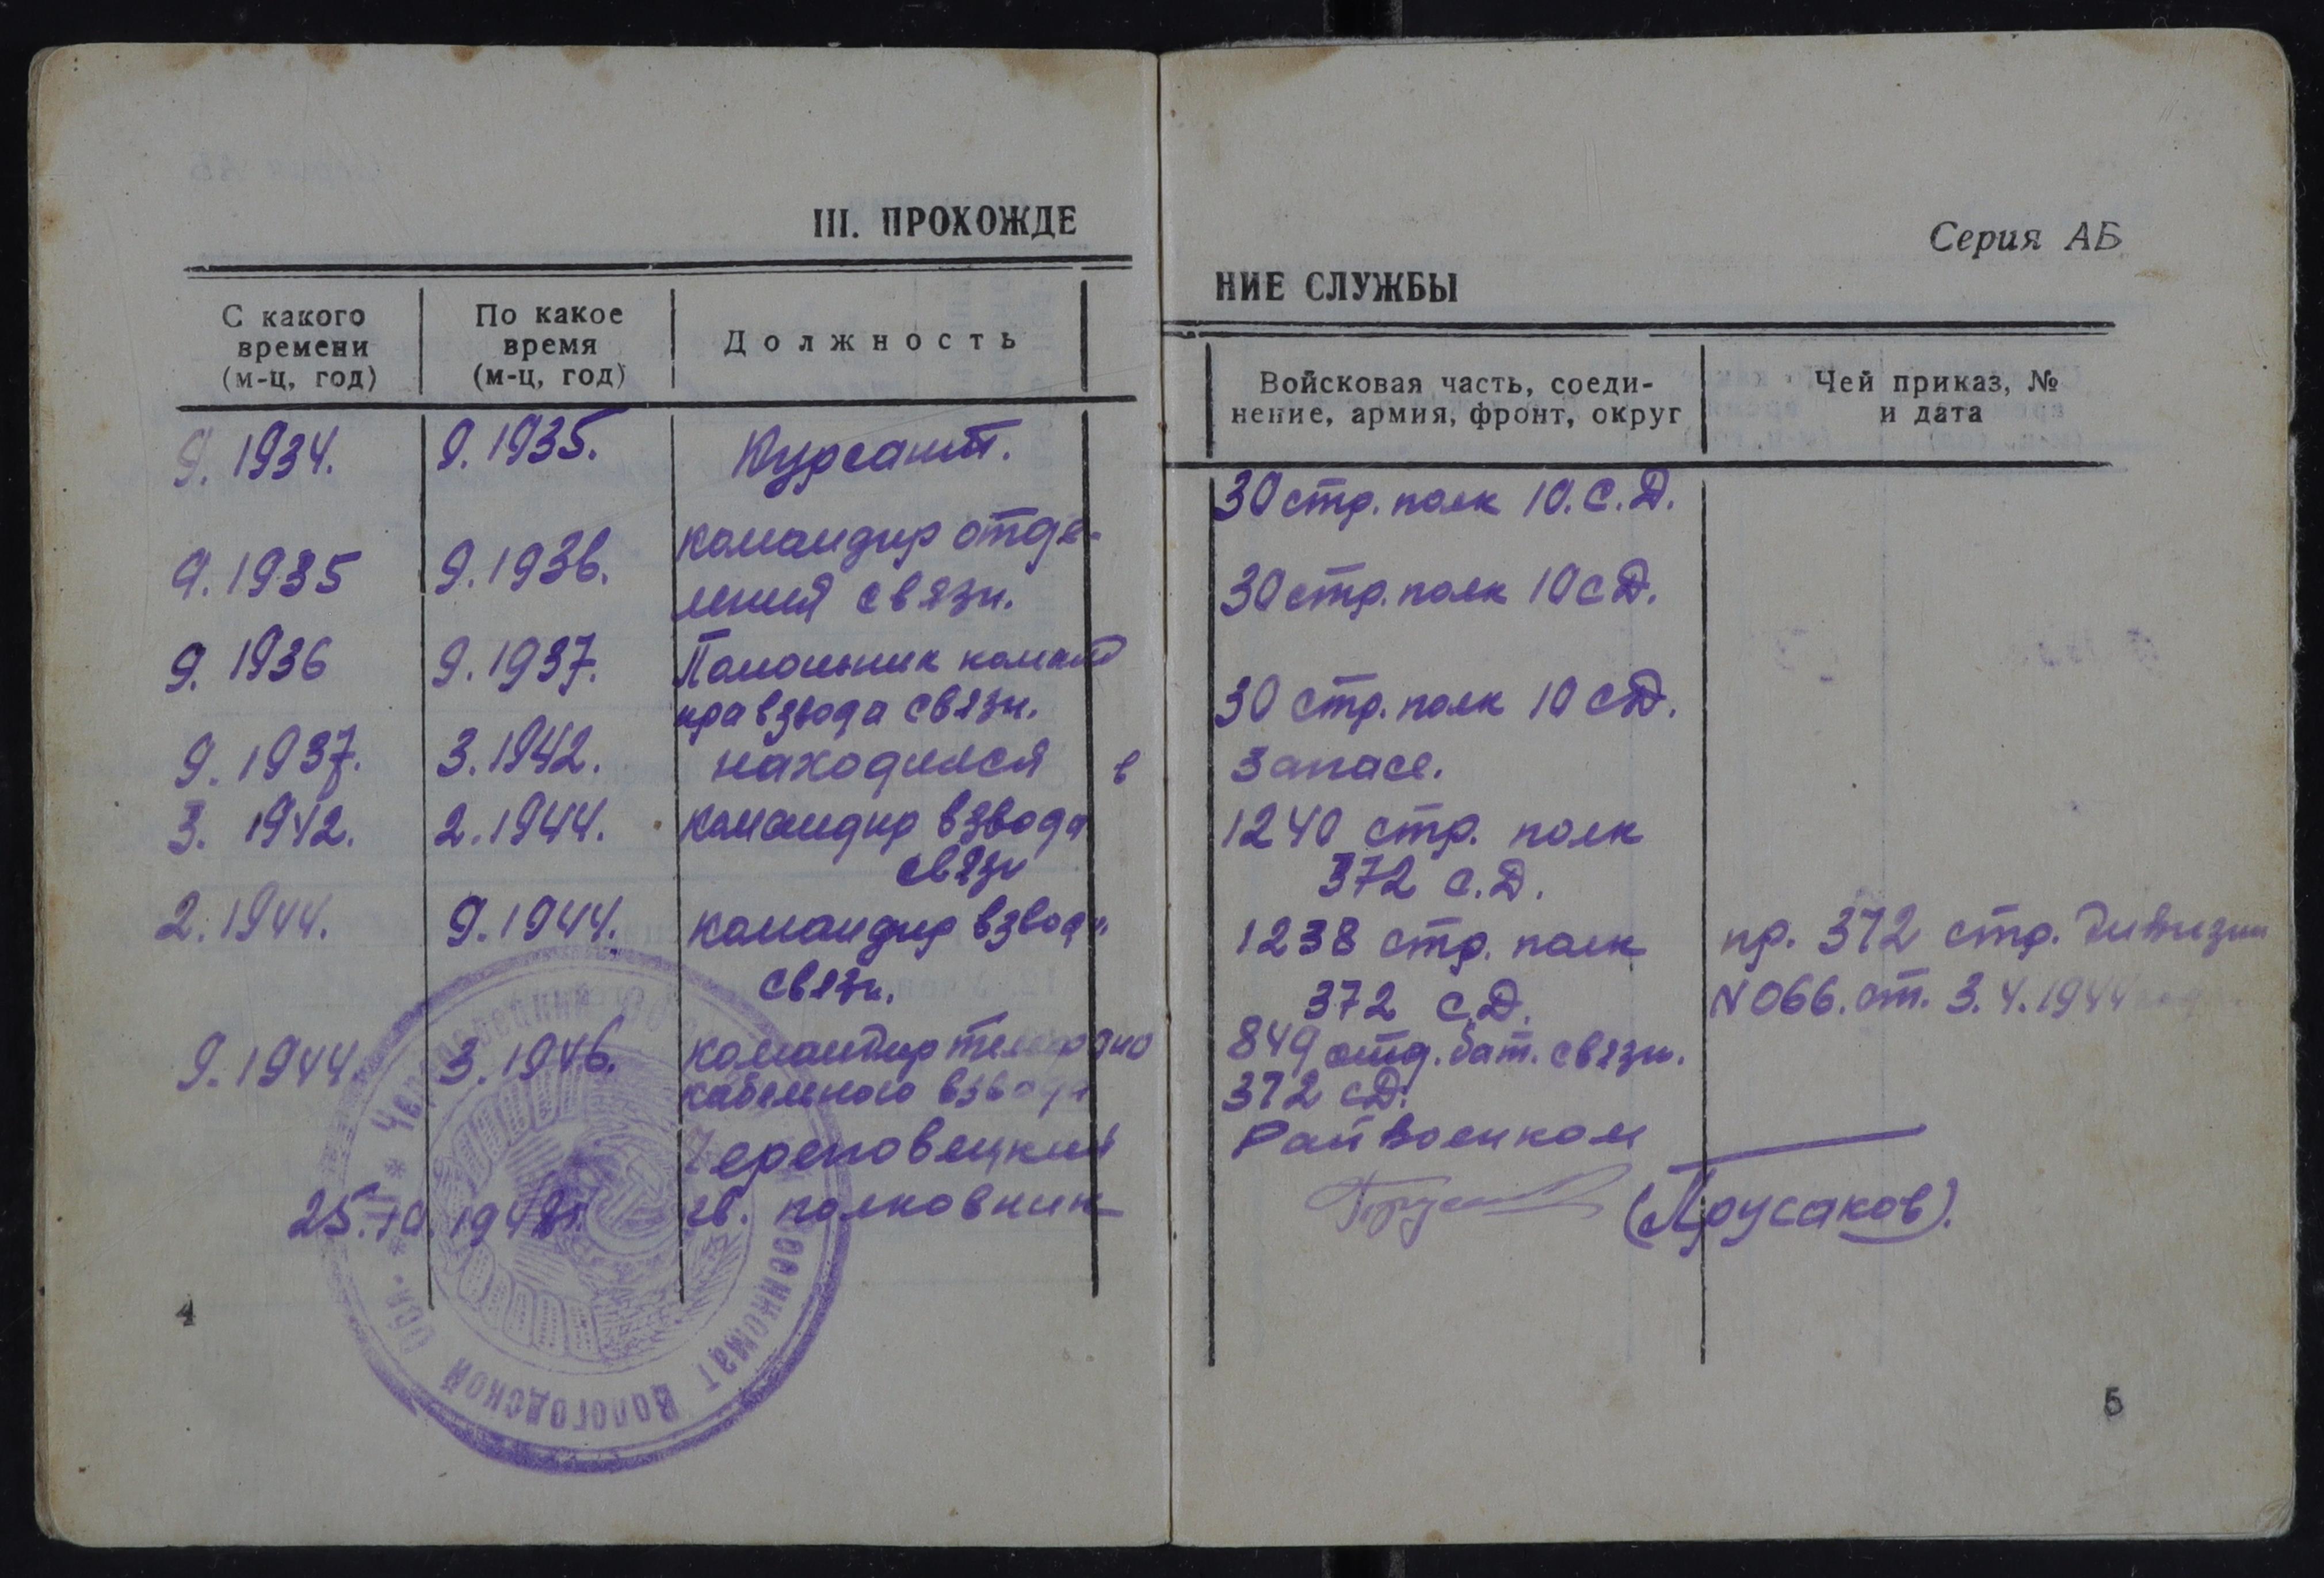 III. ПРОХОЖДЕ
С какого времени (м-ц, год)
По какое время (м-ц, год)
Должность
9. 1934.
9. 1935.
Курсант.
9. 1935
9. 1936.
командир отде-
ления связи.
9. 1936
9. 1937.
Помошник команд
ира взвода связи.
9. 1937.
3. 1942.
находился в
3. 1942.
2. 1944.
командир взвода
связи
2. 1944.
9. 1944.
командир взвода
связи.
9. 1944
3. 1946.
командир
кабельного взвода
Череповецкий
25. 1948г.
гв. полковник
Череповецкий
военкомат Вологодской Обл.
4
Серия АБ
НИЕ СЛУЖБЫ
Войсковая часть, соеди-
нение, армия, фронт, округ
Чей приказ, №
и дата
30 стр. полк 10. С.Д.
30 стр. полк 10 СД.
30 стр. полк 10 СД.
Запасе.
1240 стр. полк
372 С.Д.
1238 стр. полк
372 С.Д.
пр. 372 стр. дивизии
N 066. от. 3. 4. 1944
849 отд. бат. связи.
372 СД.
Райвоенком
(Прусаков).
5